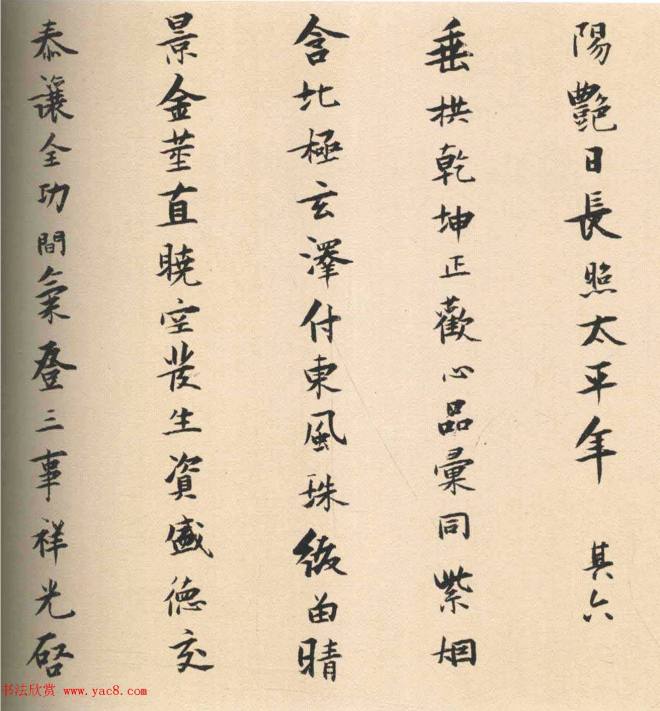 陽艷日長照太平年 其六
垂拱乾坤正歡心品彙同紫烟
含北極玄澤付東風珠綴留晴
景金莖直曉空發生資盛德交
泰讓全功間氣登三事祥光啓
书法欣赏 www.yac8.com